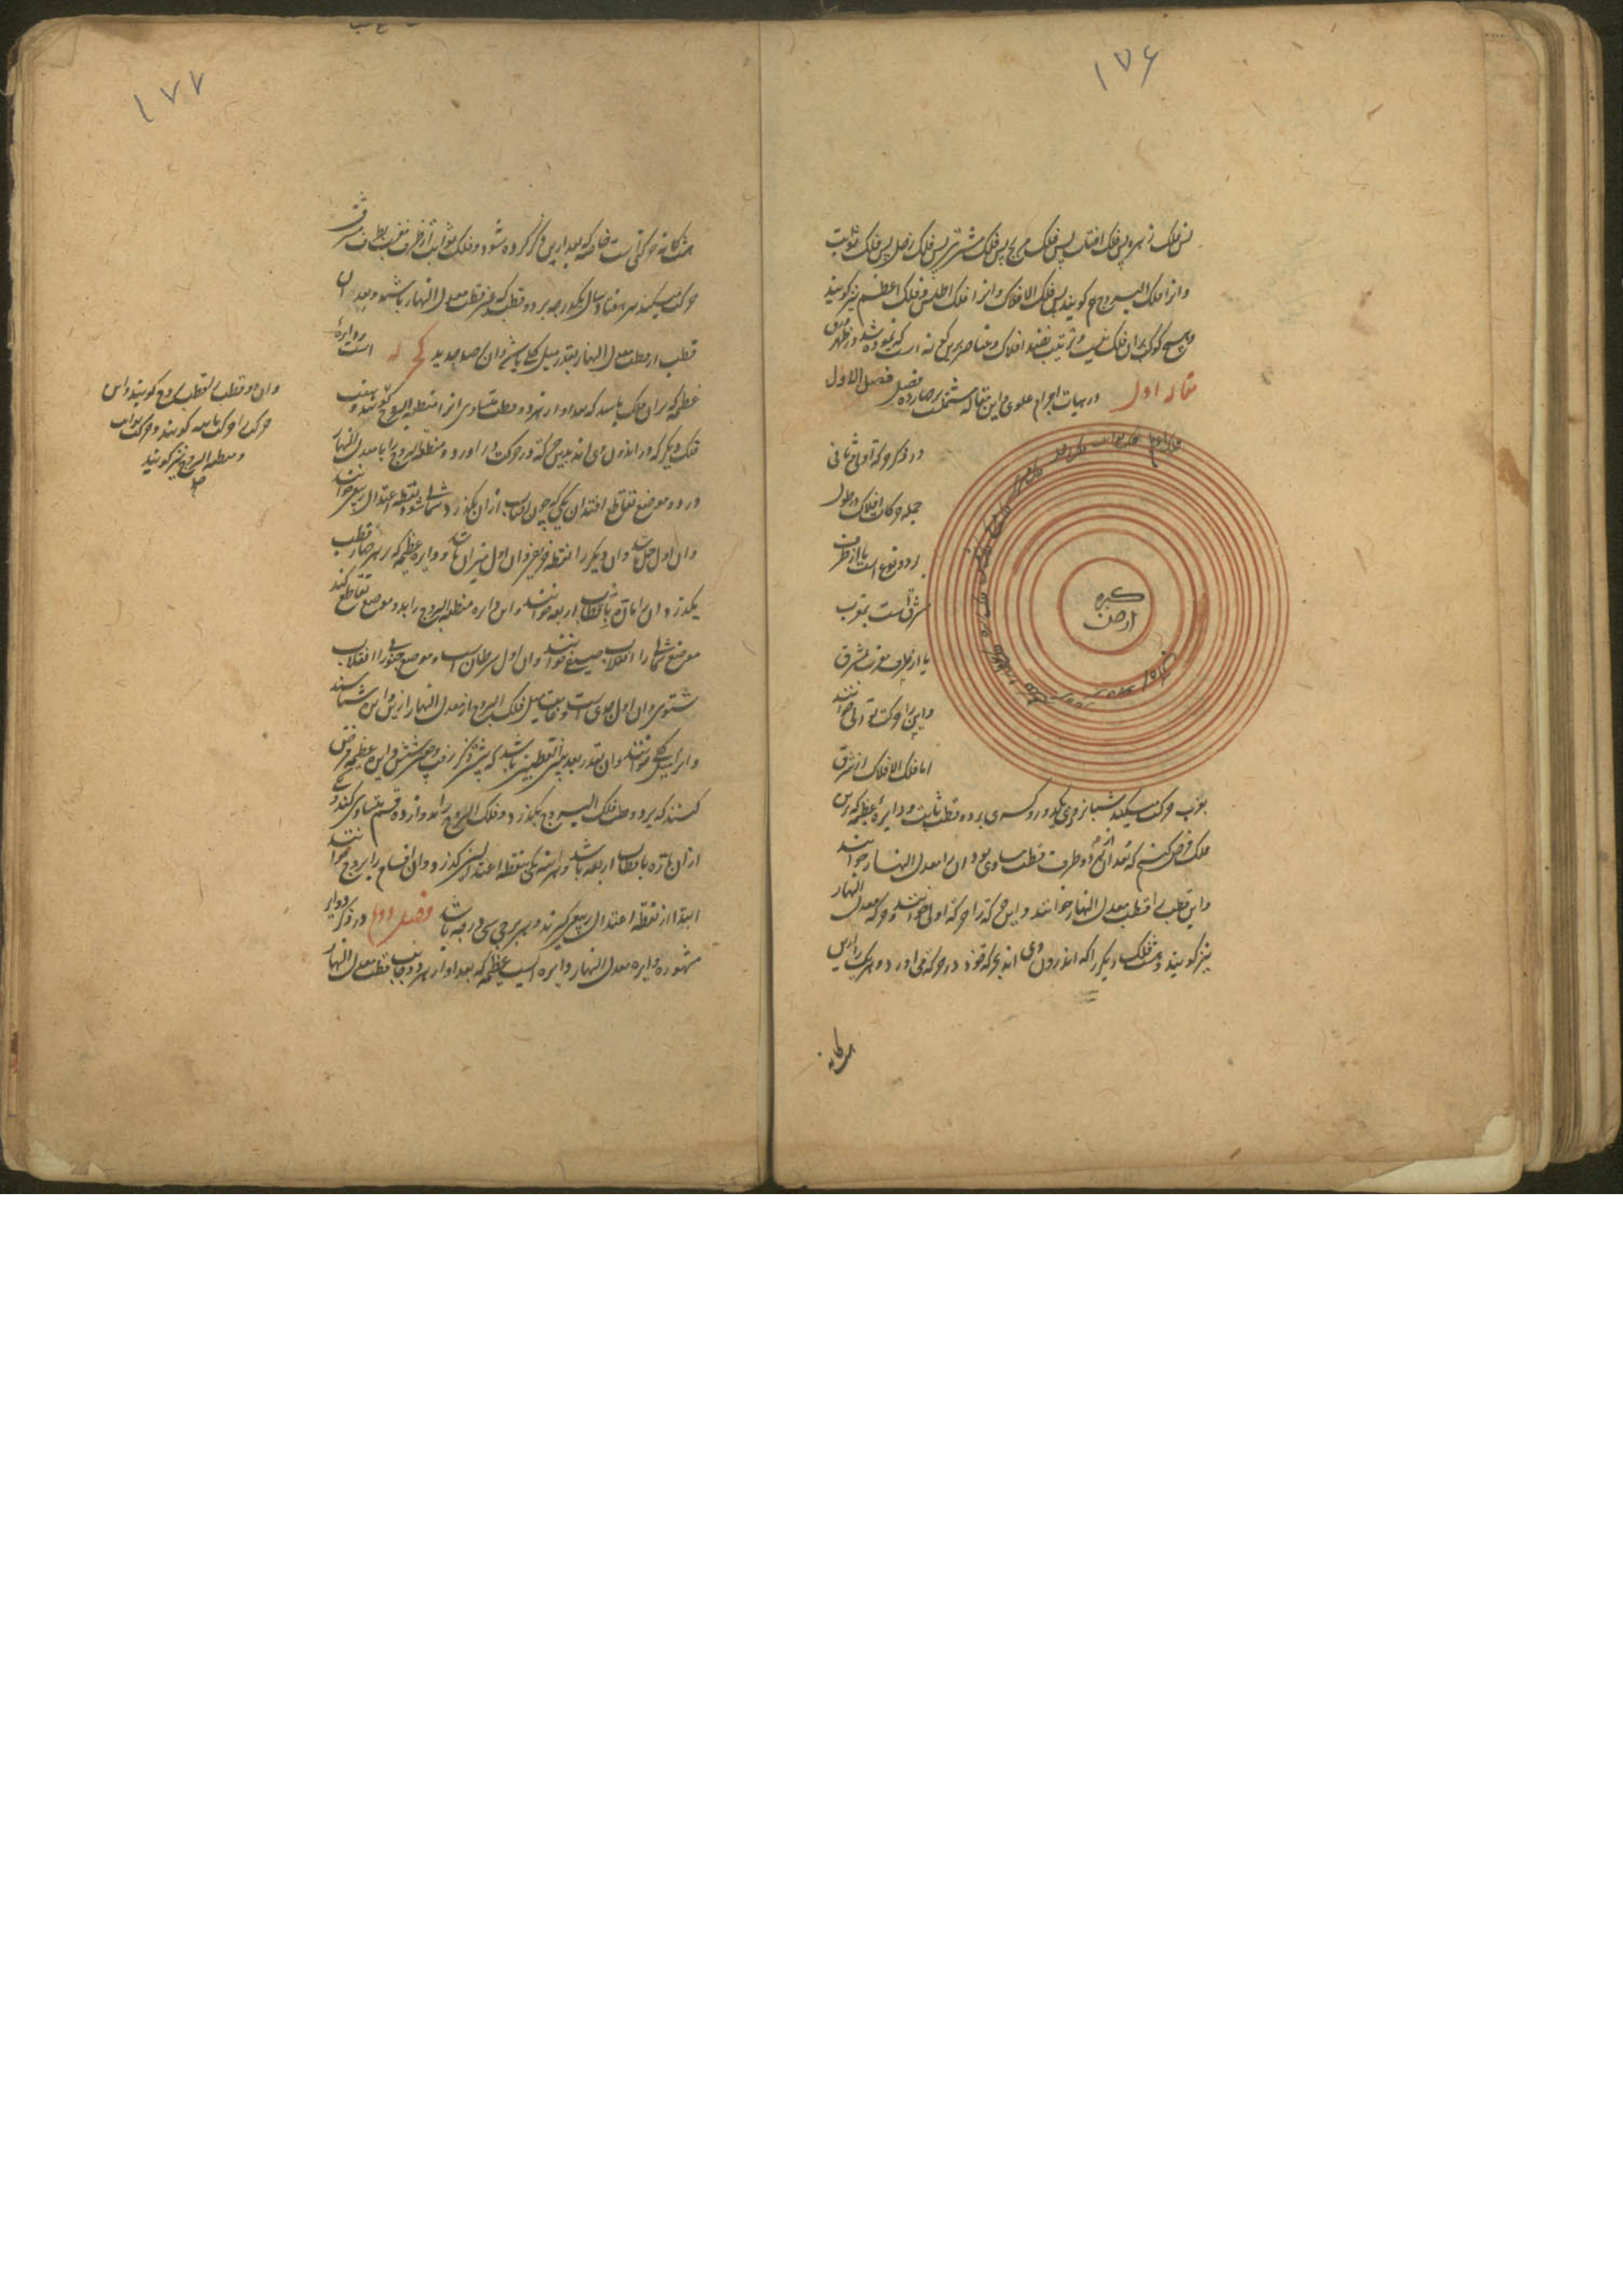 ۱۷۶
پس فلک زهره پس فلک افتاب پس فلک مریخ پس فلک مشتری پس فلک زحل پس فلک ثوابت
وانرا فلک البروج هم کویند پس فلک الافلاک وانرا فلک اطلس و فلک اعظم نیز کویند
و هیچ کوکب بران فلک نیست و ترتیب نضد افلاک و عناصر برین کونه است که نموده شد
مقاله اول در هیات اجرام علوی و این مقاله مشتملست بر چارده فصل فصل الاول
در ذکر حرکة اولی و ثانی
جمله حرکات افلاک در طول
بر دو نوع است یا از طرف
مشرق است بمغرب
یا از طرف مغرب بمشرق
واین را حرکت توالی خوانند
اما فلک الافلاک از مشرق
کره
ارض
بمغرب حرکت میکند شبانروزی یکدور وکسری بر دو قطب ثابت و دایره عظیمه که برین
فلک فرض کنیم که بعد از هر دو طرف قطب مساوی بود ان را معدل النهار خوانند
واین قطب را قطب معدل النهار خوانند و این حرکة را حرکة اولی خوانند و حرکة معدل النهار
نیز کویند و هشت فلک دیکر را که اندرون وی اند بحرکة خود در حرکة می اورد و هریک را ازین
هشت کانه
۱۷۷
هشت کانه حرکتی است خاصه که بعد ازین ذکر کرده شود و فلک ثوابت از طرف مغرب بطرف مشرق
حرکت میکند هر هفتاد سال یکدرجه بر دو قطب که غیر قطب معدل النهار باشد و بعد ان
قطب از قطب معدل النهار بقدر میل کلی باشد وان برصد جدید کج له است و دایرهٔ
عظیمه که بران فلک باشد که بعد او از هر دو قطب متساوی انرا منطقة البروج کویند و هفت
فلک دیکر که در اندرون وی اند بدین حرکة در حرکت ارد و منطقة البروج را با معدل النهار
در دو موضع تقاطع افتد ان یکی که چون افتاب از ان بکذرد شمالی شود نقطه اعتدال ربیعی خوانند
وان اول حمل باشد وان دیکر را نقطه خریفی وان اول میزان باشد و دایره عظیمه که بر هر چار قطب
بکذرد ان را مارّه باقطاب اربعه خوانند و این دایره منطقة البروج را بدو موضع تقاطع کند
موضع شمالی را انقلاب صیفی خوانند وان اول سرطان است و موضع جنوبی را انقلاب
شتوی وان اول جدی است و غایت میل فلک البروج از معدل النهار ازین دایره شناسند
وانرا میل کلی خوانند وان بقدر بعد بین القطبین باشد که پیش ذکر رفت و چون شش دایره عظیمه فرض
کنند که بر دو قطب فلک البروج بکذرد و فلک البروج را بدوازده قسم متساوی کند و یکی
از ان مارّه باقطاب اربعه باشد و یکی بنقطه اعتدالین کذرد و ان اقسام را بروج خوانند
ابتدا از نقطه اعتدال ربیعی کیرند و هر برجی سی درجه باشد فصل دوم در ذکر دوایر
مشهوره دایره معدل النهار دایره ایست عظیمه که بعد او از هر دو جانب قطب معدل النهار
وان دو قطب را قطب بروج کویند واین
حرکت را حرکت ثانیه کویند و حرکت ثوابت
و منطقة البروج نیز کویند
صح